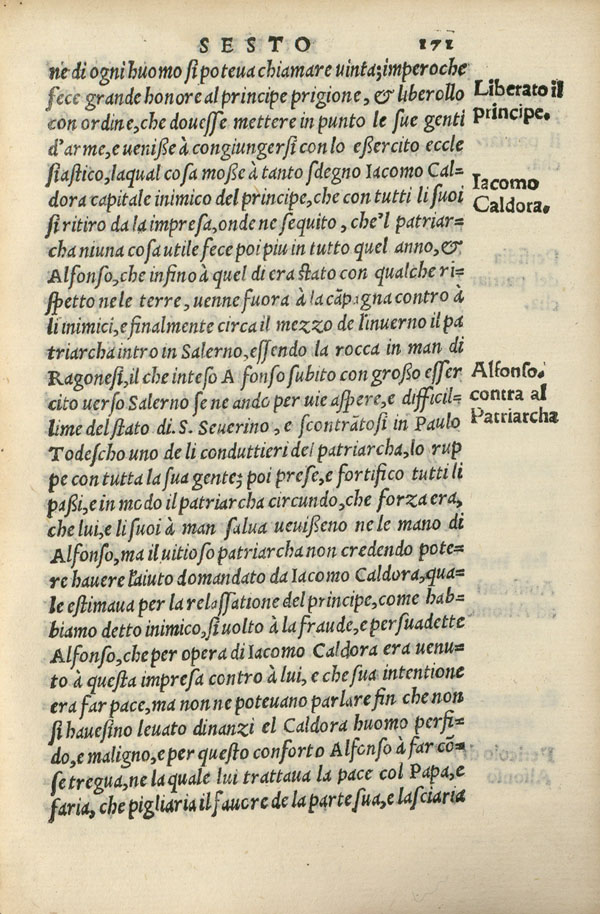 SESTO 171
ne di ogni huomo si poteua chiamare uinta; imperoche
fece grande honore al principe prigione, & liberollo
con ordine, che douesse mettere in punto le sue genti
d'arme, e uenisse à congiungersi con lo essercito eccle
siastico, laqual cosa mosse à tanto sdegno Iacomo Cal=
dora capitale inimico del principe, che con tutti li suoi
si ritiro da la impresa, onde ne sequito, che'l patriar=
cha niuna cosa utile fece poi piu in tutto quel anno, &
Alfonso, che infino à quel di era stato con qualche ri=
spetto ne le terre, uenne fuora à la cãpagna contro à
li inimici, e finalmente circa il mezzo de l'inuerno il pa
triarcha intro in Salerno, essendo la rocca in man di
Ragonesi, il che inteso A fonso subito con grosso esser
cito uerso Salerno se ne ando per uie aspere, e difficil=
lime del stato di. S. Seuerino, e scontrãtosi in Paulo
Todescho uno de li conduttieri del patriarcha, lo rup
pe con tutta la sua gente; poi prese, e fortifico tutti li
passi, e in modo il patriarcha circundo, che forza era,
che lui, e li suoi à man salua ueuisseno ne le mano di
Alfonso, ma il uitioso patriarcha non credendo pote=
re hauere l'aiuto domandato da Iacomo Caldora, qua=
le estimaua per la relassatione del principe, come hab=
biamo detto inimico, si uolto à la fraude, e persuadette
Alfonso, che per opera di Iacomo Caldora era uenu=
to à questa impresa contro à lui, e che sua intentione
era far pace, ma non ne poteuano parlare fin che non
si hauesino leuato dinanzi el Caldora huomo perfi=
do, e maligno, e per questo conforto Alfonso à far cõ=
se tregua, ne la quale lui trattaua la pace col Papa, e
faria, che pigliaria il fauore de la parte sua, e lasciaria
Liberato il
principe.
Iacomo
Caldora.
Alfonso.
contra al
Patriarcha